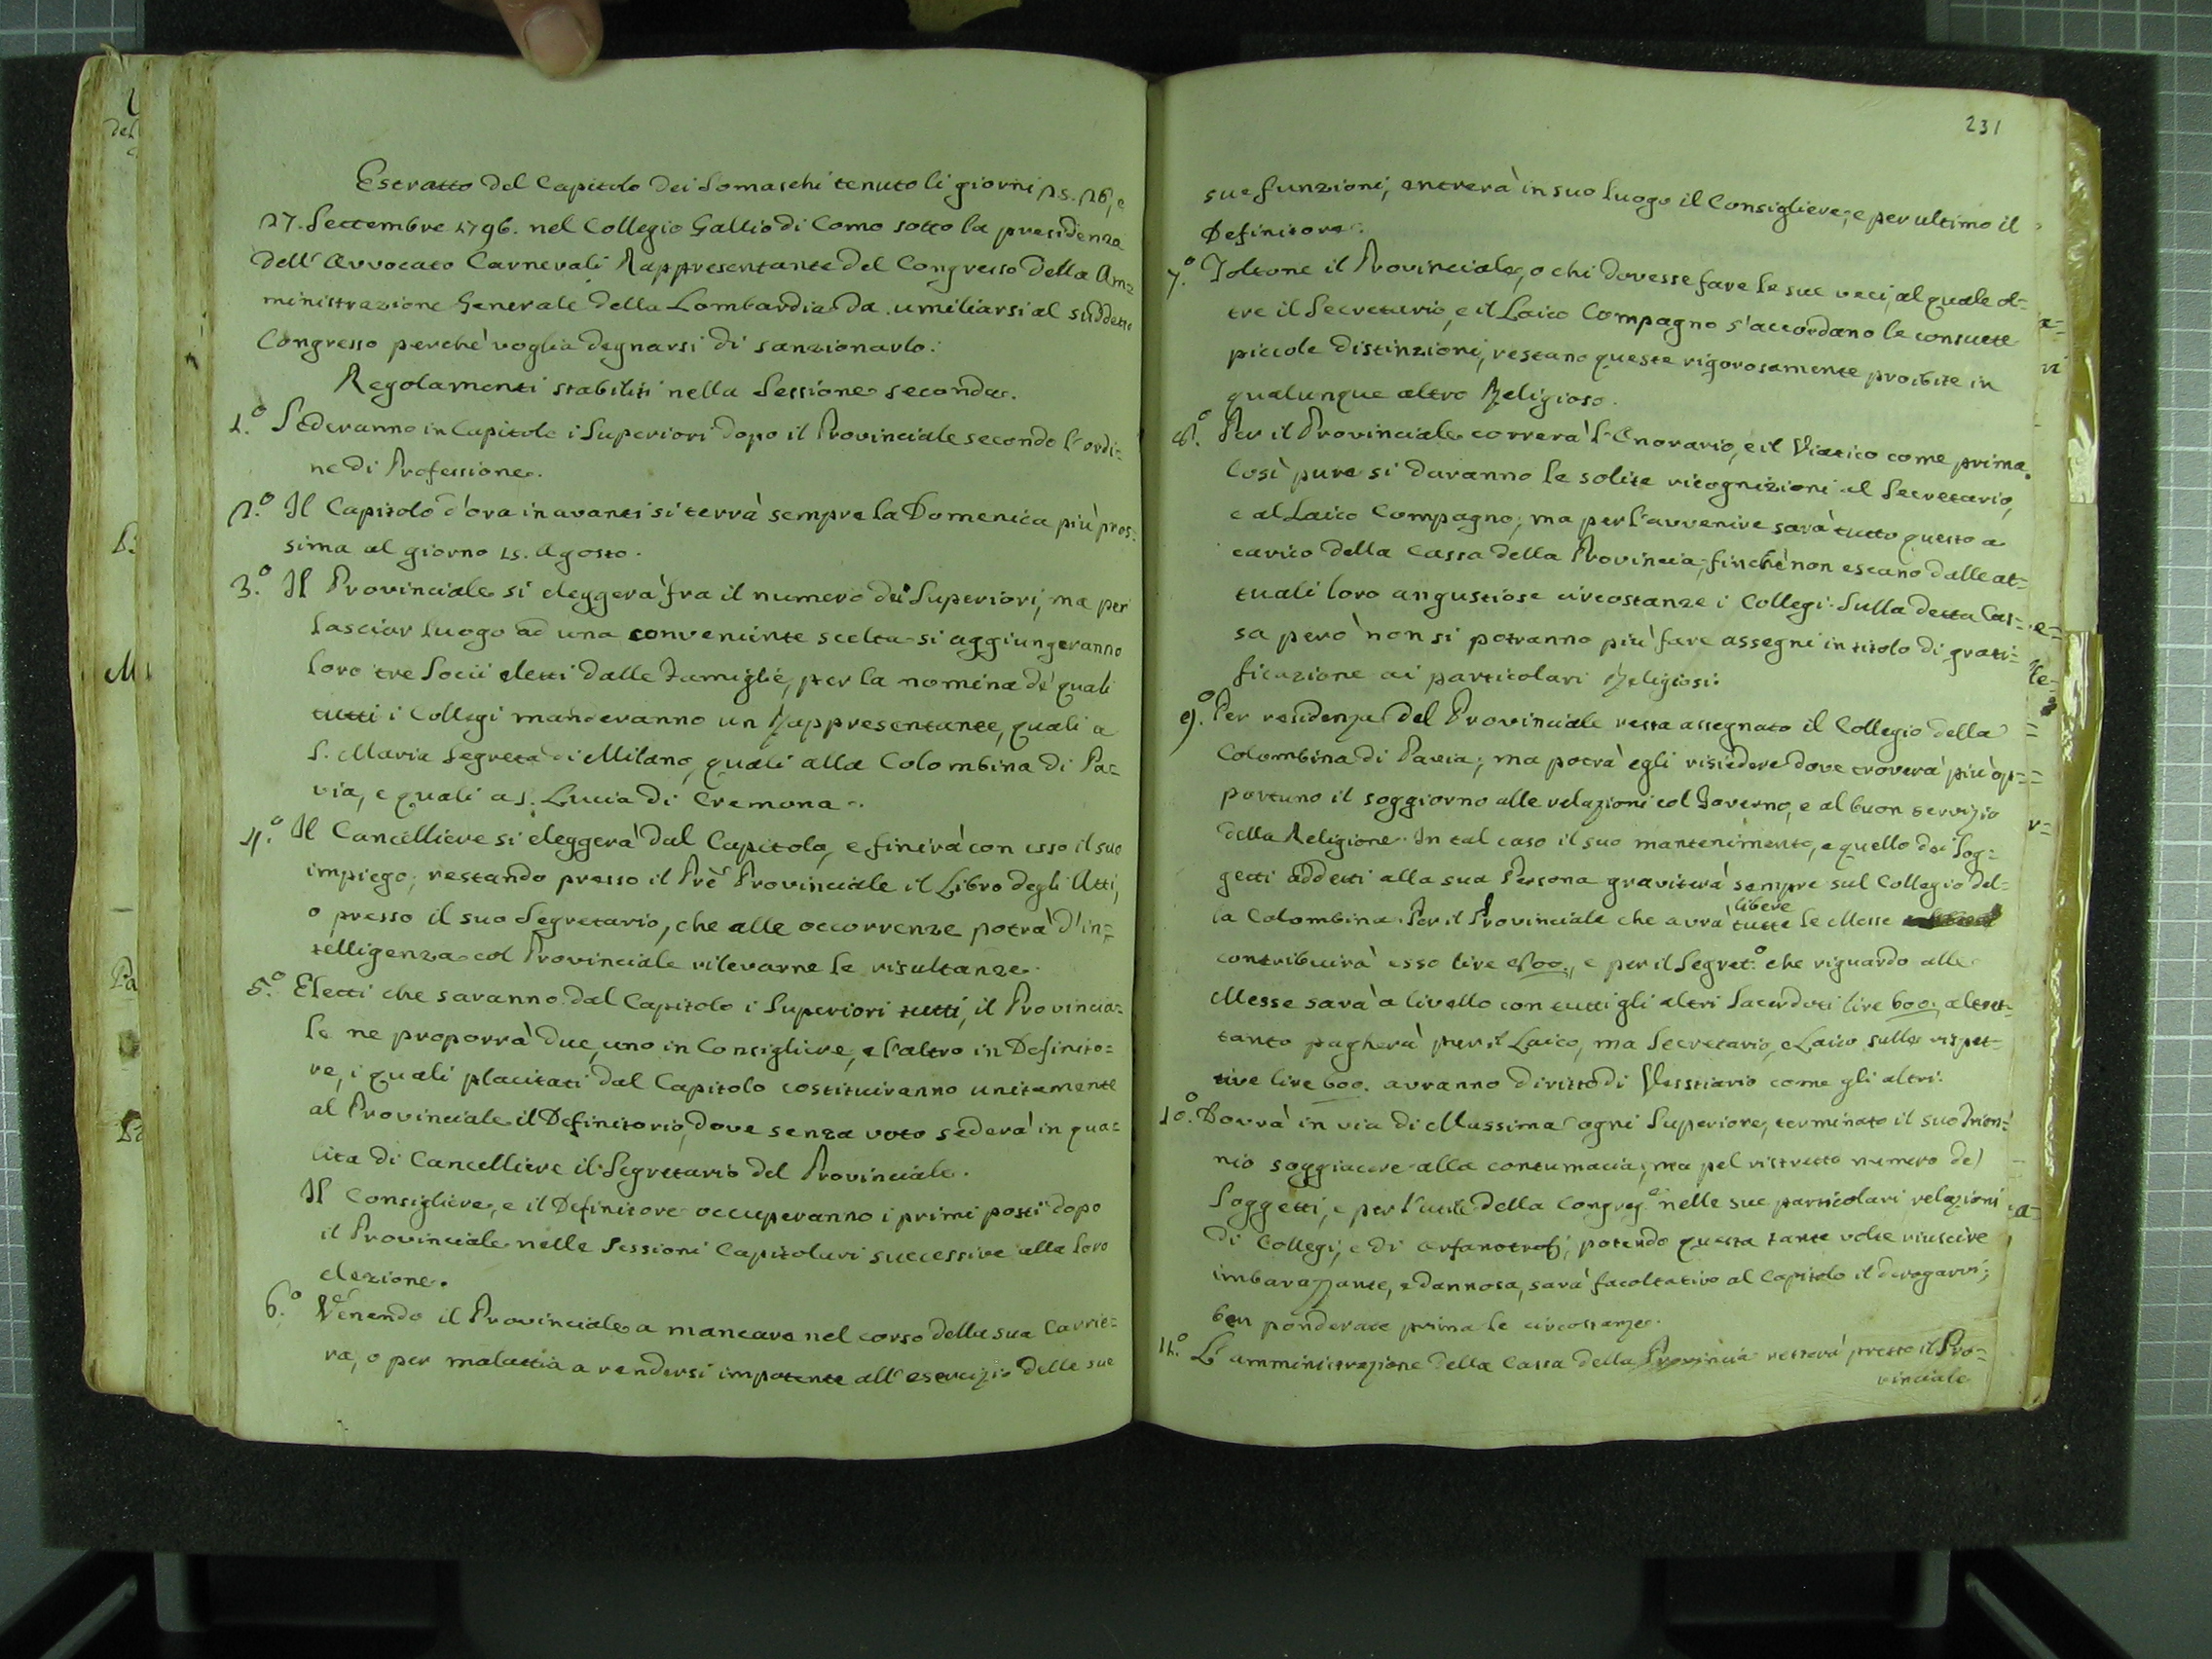 Estratto del Capitolo dei Somaschi tenuto li giorni 25. 26, e
27. Settembre 1796. nel Collegio Gallio di Como sotto la presidenza
dell'Avvocato Carnevali Rappresentante del Congresso della Am=
ministrazione Generale della Lombardia da umiliarsi al suddetto
Congresso perchè voglia degnarsi di sanzionarlo.
Regolamenti stabiliti nella Sessione seconda.
1.o Sederanno in Capitolo i Superiori dopo il Provinciale secondo l'ordi=
ne di Professione.
2.o Il Capitolo d'ora in avanti si terrà sempre la Domenica più pros=
sima al giorno 15. Agosto.
3.o Il Provinciale si eleggerà fra il numero dei Superiori, ma per
lasciar luogo ad una conveniente scelta si aggiungeranno
loro tre Socii eletti dalle Famiglie, per la nomina de' quali
tutti i Collegi manderanno un Rappresentante, quali a
S. Maria Segreta di Milano, quali alla Colombina di Pa=
via, e quali a S. Lucia di Cremona.
4.o Il Cancelliere si eleggerà dal Capitolo, e finirà con esso il suo
impiego, restando presso il Prê Provinciale il Libro degli Atti,
o presso il suo Segretario, che alle occorrenze potrà d'in=
telligenza col Provinciale rilevarne le risultanze.
5.o Eletti che saranno dal Capitolo i Superiori tutti, il Provincia=
le ne proporrà due, uno in Consigliere, e l'altro in Definito=
re, i quali placitati dal Capitolo costituiranno unitamente
al Provinciale il Definitorio, dove senza voto sederà in qua=
lita di Cancelliere il Segretario del Provinciale.
Il Consigliere, e il Definitore occuperanno i primi posti dopo
il Provinciale nelle Sessioni Capitolari successive alla loro
elezione.
6.o Venendo il Provinciale a mancare nel corso della sua Carrie=
ra, o per malattia a rendersi impotente all'esercizio delle sue
231
sue funzioni, entrerà in suo luogo il Consigliere, e per ultimo il
Definitore.
7.o Toltone il Provinciale, o chi dovesse fare le sue veci, al quale ol=
tre il Secretario, e il Laico Compagno s'accordano le consuete
piccole distinzioni, restano queste rigorosamente proibite in
qualunque altro Religioso.
8.o Per il Provinciale correrà l'Onorario, e il Viatico come prima.
Così pure si daranno le solite ricognizioni al Secretario,
e al Laico Compagno; ma per l'avvenire sarà tutto questo a
carico della Cassa della Provincia, finchè non escano dalle at=
tuali loro angustiose circostanze i Collegi. Sulla detta Cas=
sa però non si potranno più fare assegni in titolo di grati=
ficazione ai particolari Religiosi.
9.o Per residenza del Provinciale resta assegnato il Collegio della
Colombina di Pavia; ma potrà egli risiedere dove troverà più op=
portuno il soggiorno alle relazioni col Governo, e al buon servizio
della Religione. In tal caso il suo mantenimento, e quello dei Sog=
getti addetti alla sua Persona graviterà sempre sul Collegio del=
libere
la Colombina. Per il Provinciale che avrà tutte le Messe
contribuirà esso lire 800., e per il Segret.o che riguardo alle
Messe sarà a livello con tutti gli altri Sacerdoti lire 600, altret=
tanto pagherà per il Laico, ma Secretario, e Laico sulle rispet=
tive lire 600. avranno diritto di Vesstiario come gli altri.
10.o Dovrà in via di Massima ogni Superiore, terminato il suo Trien=
nio soggiacere alla contumacia; ma pel ristretto numero de'
Soggetti, e per l'utile della Congreg.e nelle sue particolari relazioni
di Collegi, e di Orfanotrofj, potendo questa tante volte riuscire
imbarazzante, e dannosa, sarà facoltativo al Capitolo il derogarvi,
ben ponderate prima le circostanze.
11.o L'amministrazione della Cassa della Provincia resterà presso il Pro=
vinciale